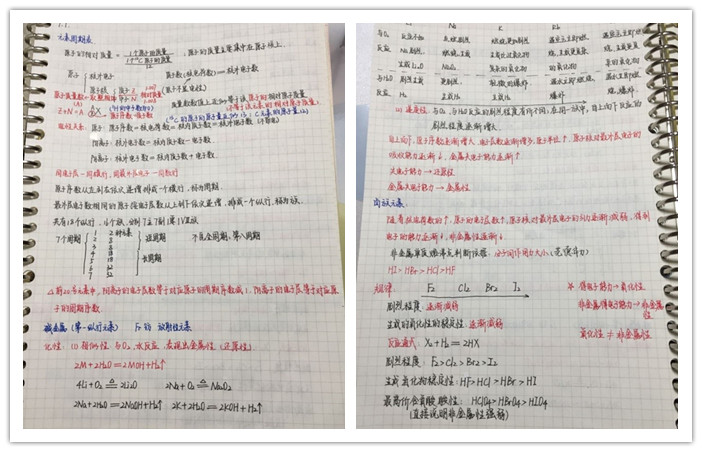 元素周期表
原子的相对质量 = 1个原子的质量 / 1个¹²C原子的质量 12 ,原子的质量主要集中在原子核上.
原子 核外电子
原子序数(核电荷数)=核外电子数
原子核 质子 Z
中子 N
(原子不显电性)
原子质量数≈
Z+N=A
质量数数值上近似等于该原子的相对原子质量.
原子:原子序数=核电荷数=核内质子数=核外电子数
阳离子:核外电子数=核内质子数-电子数
阴离子:核外电子数=核内质子数+电子数.
同电子层一同横行,同最外层电子一同数行
原子序数从左到右依次递增排成一个横行,称为周期.
最外层电子数相同的原子按电子层数从上到下依次递增,排成一个纵行,称为族.
共有18个纵行,16个族,分别7主7副1第VIII 1零族
7个周期
1 2 种元素
2 8
3 8
4 18
5 18
6 32
7 32
短周期
长周期
不完全周期:第八周期
子的周期序数.
碱金属(第一纵行元素) Fr为 放射性元素
化性:(1)相似性 与O₂、水反应,表现出金属性(还原性).
2M+2H₂O=2MOH+H₂↑
4Li+O₂ =△= 2Li₂O 2Na+O₂ =△= Na₂O₂
2Na+2H₂O=2NaOH+H₂↑ 2K+2H₂O=2KOH+H₂↑
Li Na K
与O₂ 反应不如
反应 Na剧烈.
生成Li₂O Na₂O₂
与H₂O 剧烈生成 更剧烈
反应 H₂ 生成H₂
(2)递变性:与O₂、与H₂O反应的剧烈程度有所不同;在同一族中,自上而下反应的
剧烈程度逐渐增大.
自上而下,原子序数逐渐增大,电子层数逐渐增多,原子半径↑,原子核对最外层电子的
吸引能力逐渐↓,金属失电子能力逐渐↑
失电子能力→还原性
金属失电子能力→金属性
卤族元素.
随着核电荷数的↑,原子的电子层数↑,原子核对最外层电子的引力逐渐减弱,得到
电子的能力逐渐↓,非金属性逐渐↓.
非金属单质熔沸点判断依据:分子间作用力大小(范德华力)
HI>HBr>HCl>HF
规律: F₂ Cl₂ Br₂ I₂
剧烈程度 逐渐减弱
生成的氢化物的稳定性:逐渐减弱
反应通式:X₂+H₂=2HX
剧烈程度:F₂>Cl₂>Br₂>I₂
生成氢化物稳定性:HF>HCl>HBr>HI
最高价含氧酸酸性:HClO₄>HBrO₄>HIO₄
(直接说明非金属性强弱)
※ 得电子能力→氧化性
非金属得电子能力→非金属
性
氧化性≠非金属性